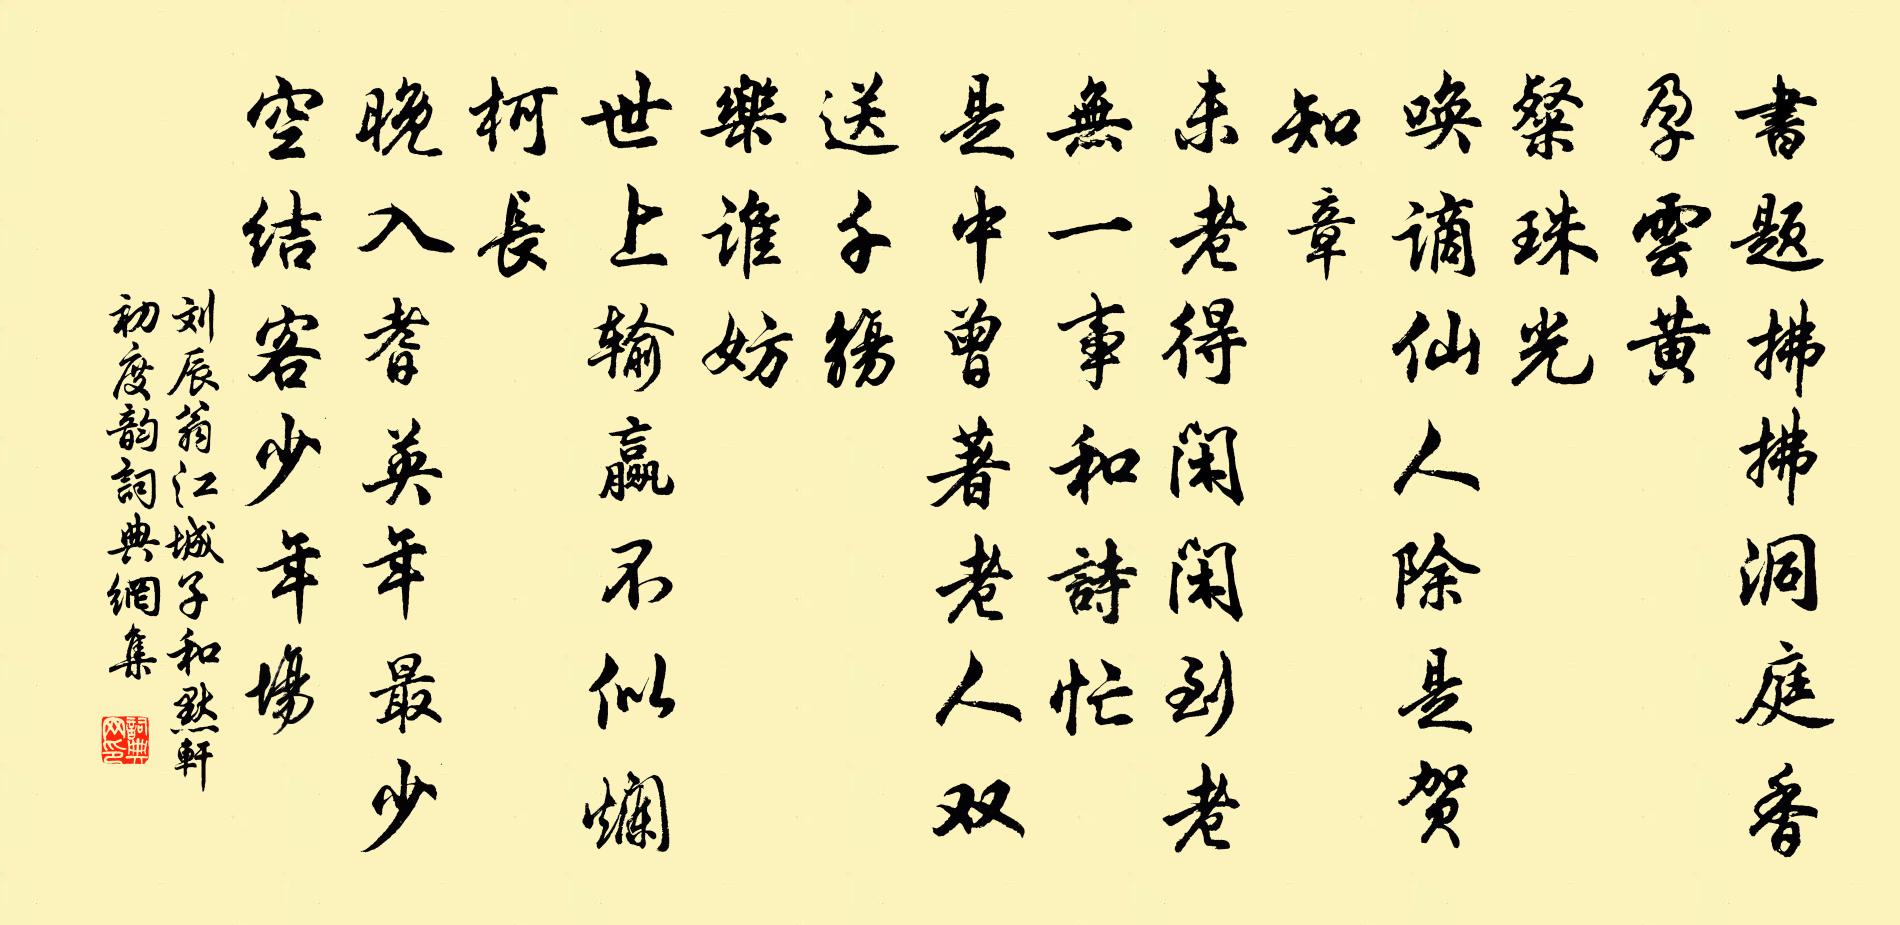 書题拂拂洞庭香
孕雲黄
粲珠光
唤谪仙人除是贺
知章
未老得闲闲到老
無一事和詩忙
是中曾著老人双
送千觴
樂谁妨
世上输赢不似爛
柯長
晚入耆英年最少
空结客少年場
刘辰翁江城子和默軒
初度韵詞典網集
詞典
网印